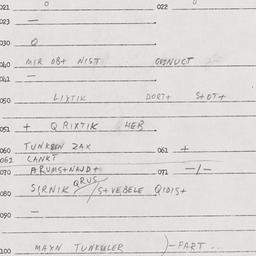 021 0 022 0
023 —
030 Q
040 MIR OB+ NIST GEZNUCT
041 —
050 LIXTIK DORT+ S+OT+
051 + Q RIXTIK HEB
060 TUNKELN ZAX 061 +
062 CANKT
070 ARUMS+NAJD+ 071 —/—
080 SIRNIK QRUS/S+VEBELE QIDIS+
090 —
100 MAXN TUNKELER )-FART...